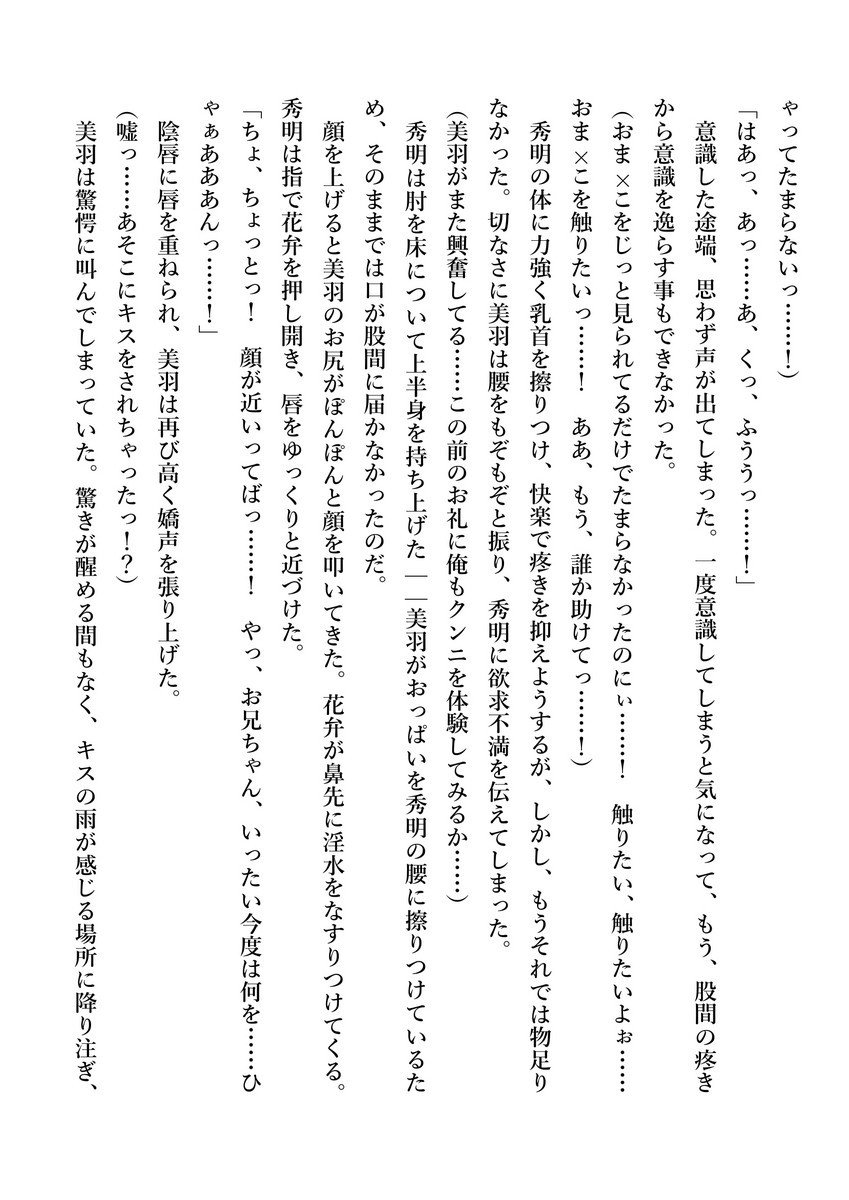 ゃってたまらないっ……！）
「はあっ、あっ……あ、くっ、ふううっ……！」
意識した途端、思わず声が出てしまった。一度意識してしまうと気になって、もう、股間の疼き
から意識を逸らす事もできなかった。
（おま×こをじっと見られてるだけでたまらなかったのにぃ……！　触りたい、触りたいよぉ……
おま×こを触りたいっ……！　ああ、もう、誰か助けてっ……！）
秀明の体に力強く乳首を擦りつけ、快楽で疼きを抑えようするが、しかし、もうそれでは物足り
なかった。切なさに美羽は腰をもぞもぞと振り、秀明に欲求不満を伝えてしまった。
（美羽がまた興奮してる……この前のお礼に俺もクンニを体験してみるか……）
秀明は肘を床について上半身を持ち上げた――美羽がおっぱいを秀明の腰に擦りつけているた
め、そのままでは口が股間に届かなかったのだ。
顔を上げると美羽のお尻がぽんぽんと顔を叩いてきた。花弁が鼻先に淫水をなすりつけてくる。
秀明は指で花弁を押し開き、唇をゆっくりと近づけた。
「ちょ、ちょっとっ！　顔が近いってばっ……！　やっ、お兄ちゃん、いったい今度は何を……ひ
ゃぁあああんっ……！」
陰唇に唇を重ねられ、美羽は再び高く嬌声を張り上げた。
（嘘っ……あそこにキスをされちゃったっ！？）
美羽は驚愕に叫んでしまっていた。驚きが醒める間もなく、キスの雨が感じる場所に降り注ぎ、